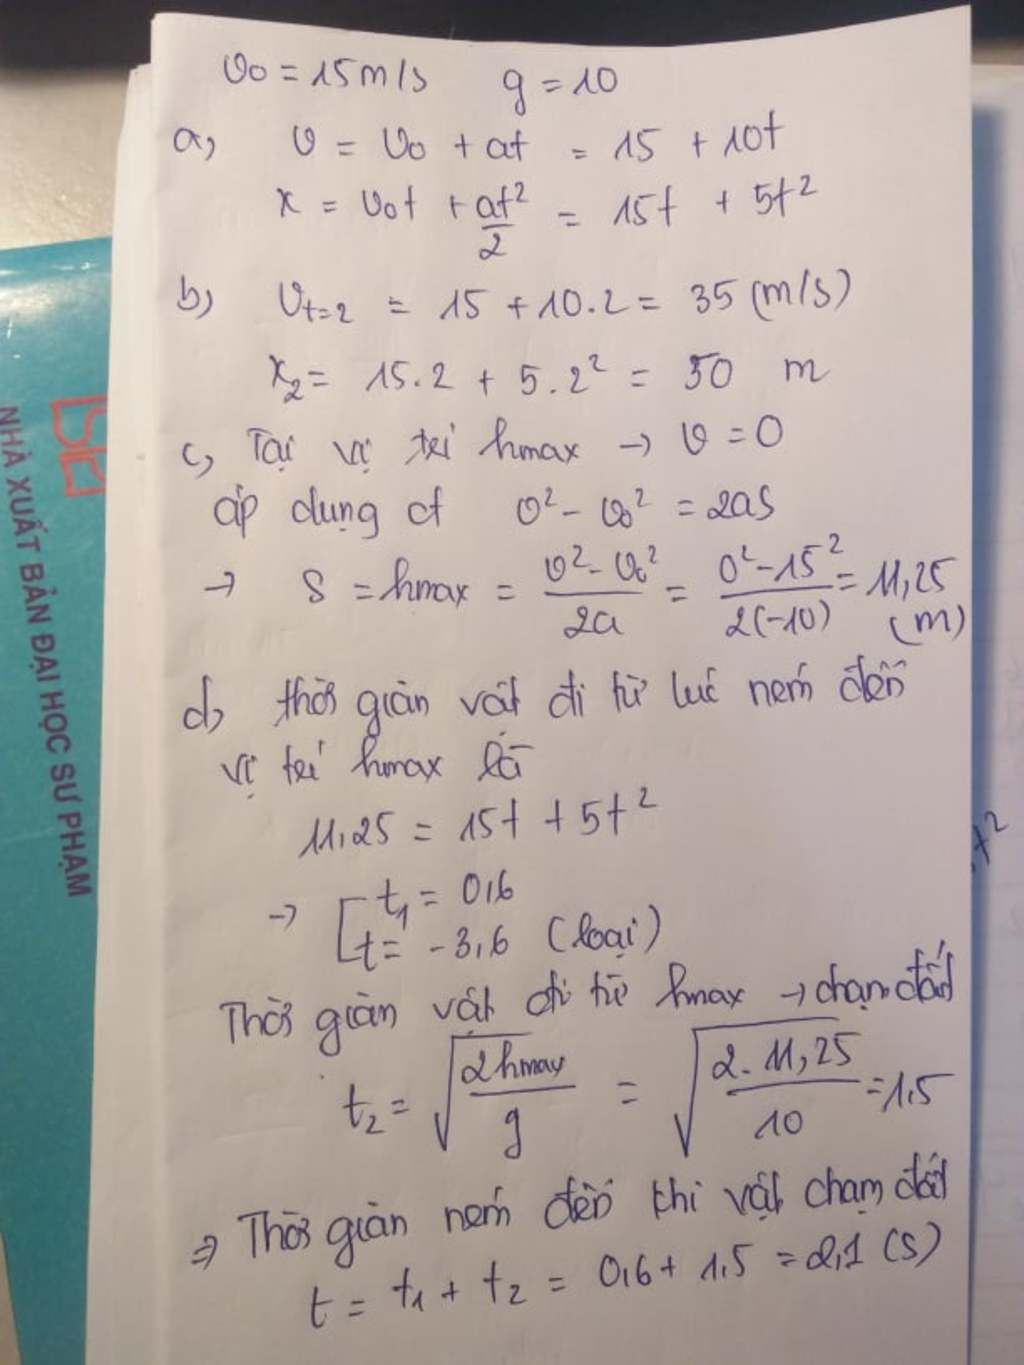 v₀ = 15m/s g = 10
a, v = v₀ + at = 15 + 10t
x = v₀t + at²/2 = 15t + 5t²
b, v_{t=2} = 15 + 10.2 = 35 (m/s)
x₂ = 15.2 + 5.2² = 50 m
c, Tại vị trí hmax → v = 0
áp dụng ct v² - v₀² = 2as
→ s = hmax = (v² - v₀²)/2a = (0² - 15²)/2(-10) = 11,25 (m)
d, thời gian vật đi từ lúc ném đến
vị trí hmax là
11,25 = 15t + 5t²
→ [ t₁ = 0,6
t = -3,6 (loại)
Thời gian vật đi từ hmax → chạm đất
t₂ = √(2hmax/g) = √(2.11,25/10) = 1,5
⇒ Thời gian ném đến khi vật chạm đất
t = t₁ + t₂ = 0,6 + 1,5 = 2,1 (s)
NHÀ XUẤT BẢN ĐẠI HỌC SƯ PHẠM